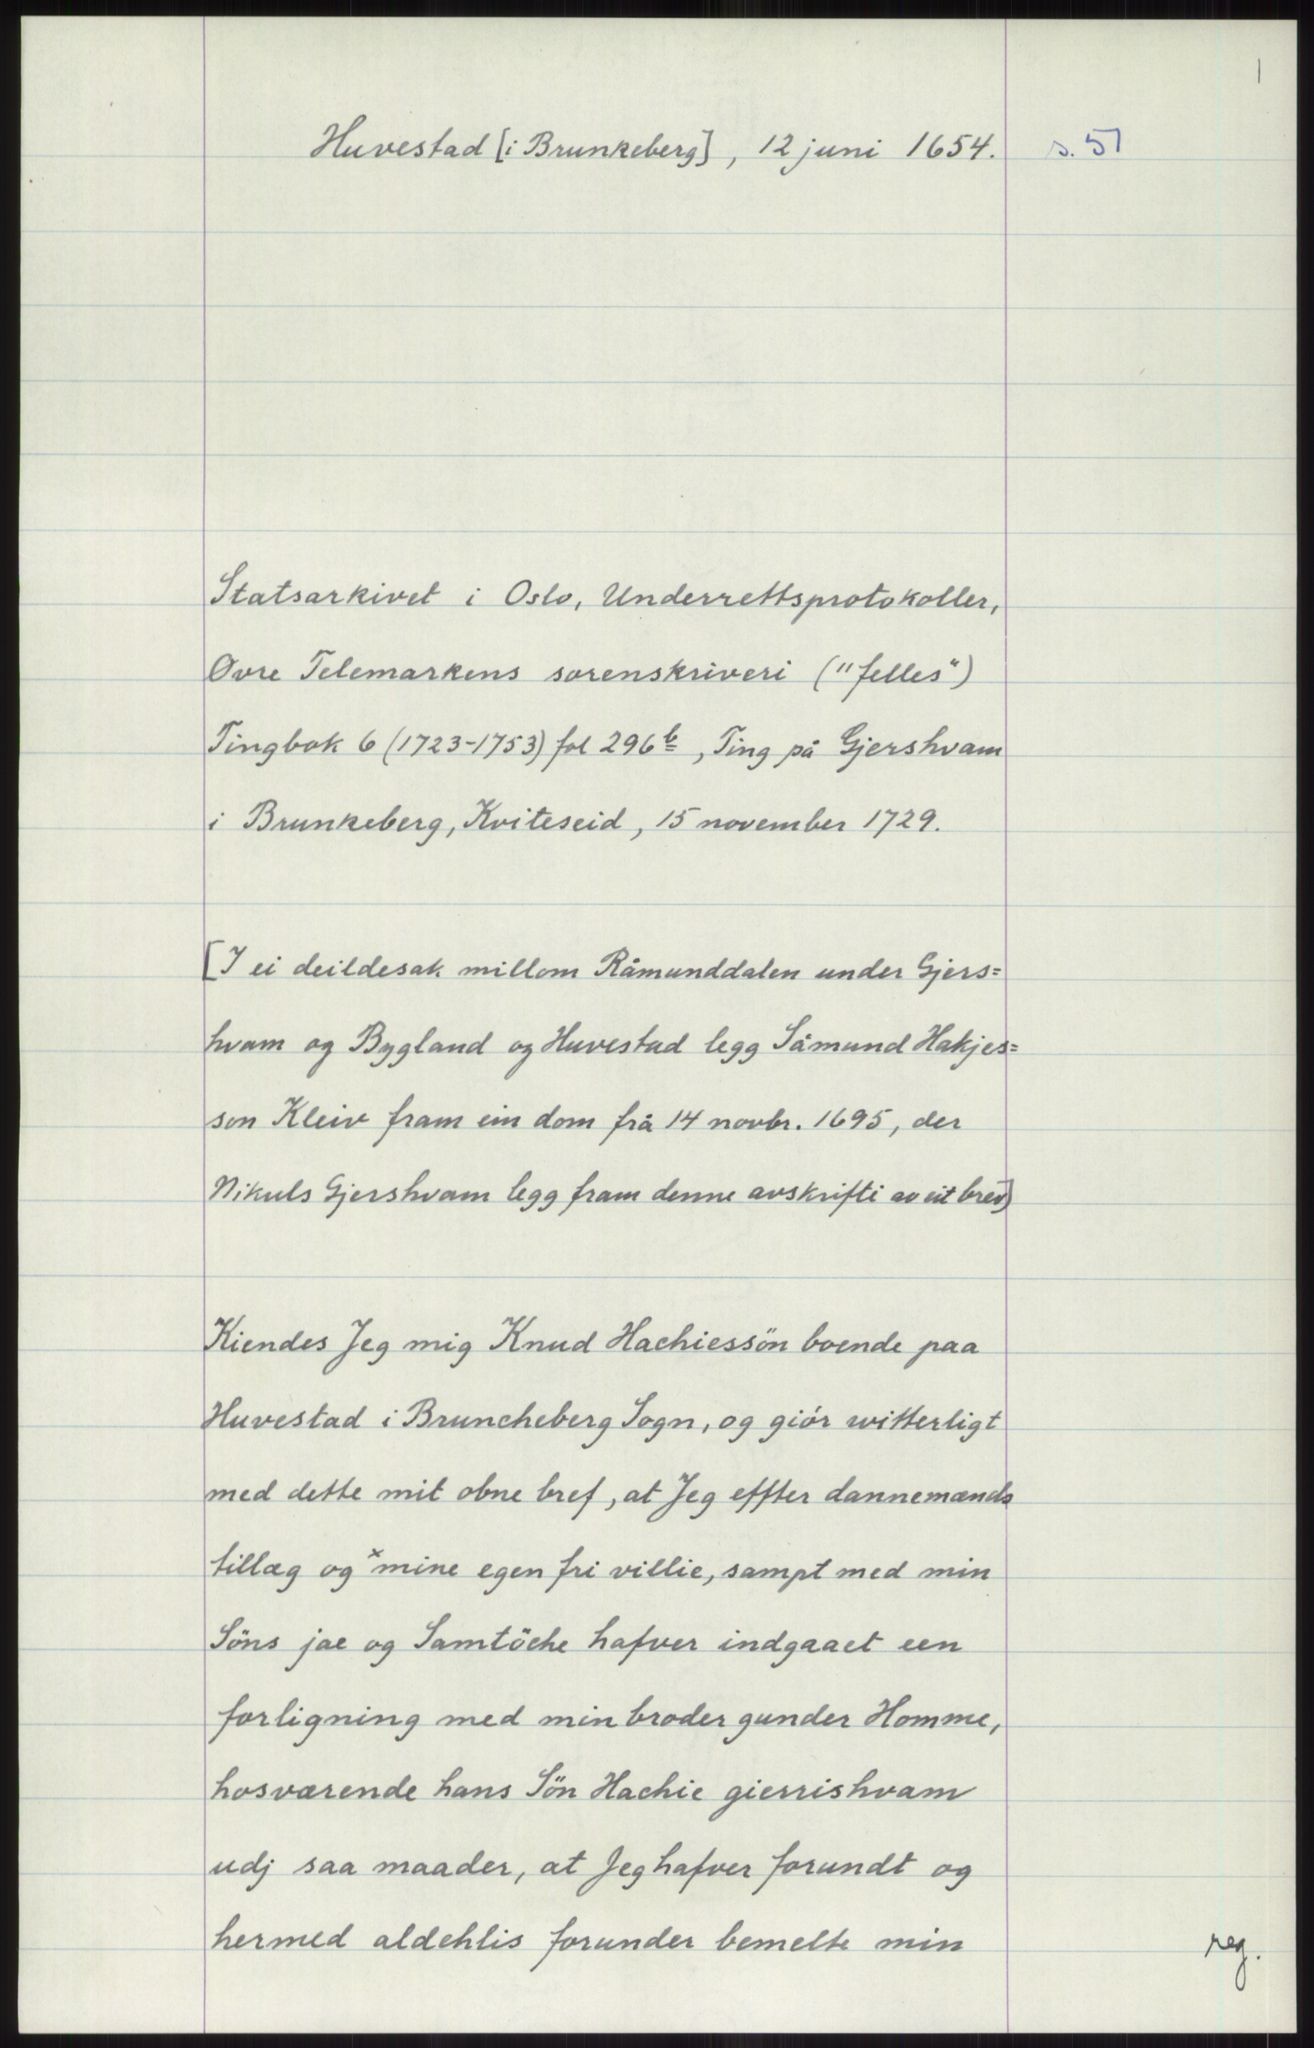 1
Huvestad [i Brunkeberg], 12 juni 1654. s. 51
Statsarkivet i Oslo, Underrettsprotokoller,
Øvre Telemarkens sorenskriveri ("felles")
Tingbok 6 (1723-1753) fol 296b, Ting på Gjershvam
i Brunkeberg, Kviteseid, 15 november 1729.
[I ei deildesak millom Råmunddalen under Gjers=
hvam og Bygland og Huvestad legg Såmund Hakjes=
son Kleiv fram ein dom frå 14 novbr. 1695, der
Nikuls Gjershvam legg fram denne avskrifti av eit brev]
Kiendes Jeg mig Knud Hachiessön boende paa
Huvestad i Bruncheberg Sogn, og giör witterligt
med dette mit obne bref, at Jeg effter dannemænds
tillæg og ˣmine egen fri villie, sampt med min
Söns jae og Samtöche hafver indgaaet een
forligning med min broder gunder Homme,
hosværende hans Sön Hachie gierrishvam
udj saa maader, at Jeg hafver forundt og
hermed aldehlis forunder bemelte min
reg.